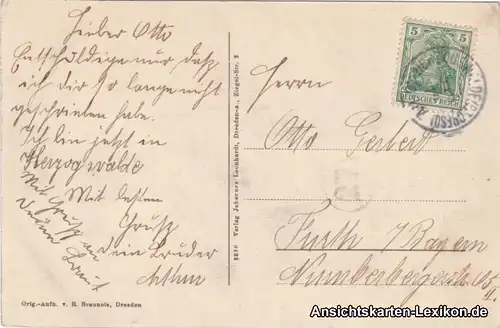 Lieber Otto
Entschuldige nur dass
ich dir so lange nicht
geschrieben habe.
Ich bin jetzt in
Herzogwalde
Mit besten
Grusz
dein Bruder
Arthur
Mit Grusz an
deine Braut
Orig.-Aufn. v. R. Braunels, Dresden
Verlag Johannes Leonhardt, Dresden-A., Ziegel-Str. 2
5
5
DEUTSCHES REICH
Herrn
Otto Gerbert
Fürth i/Bayern
Nürnbergerstr.
Ansichtskarten-Lexikon.de